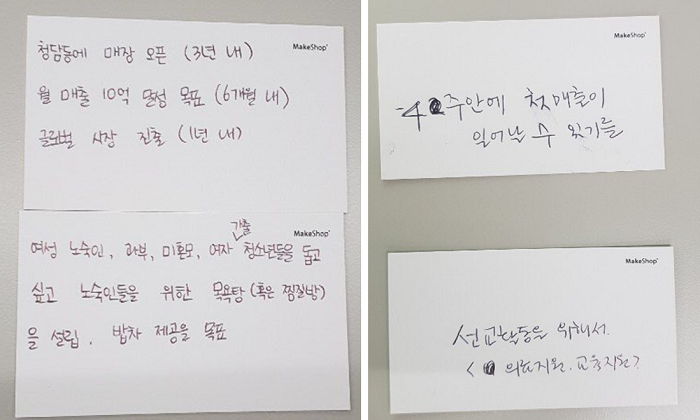 MakeShop
청담동에 매장 오픈 (3년 내)
월 매출 10억 달성 목표 (6개월 내)
글로벌 시장 진출 (1년 내)
MakeShop
가출
여성 노숙인, 과부, 미혼모, 여자 청소년들을 돕고
싶고 노숙인들을 위한 목욕탕 (혹은 찜질방)
을 설립. 밥차 제공을 목표
MakeShop
4주안에 첫매출이
일어날 수 있기를
MakeShop
선교활동을 위해서.
< 의료지원. 교육지원 >